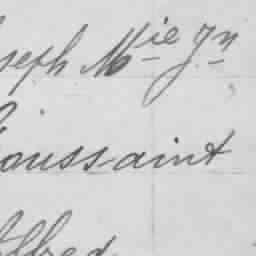 seph M^ie J^n
oussaint
lfred